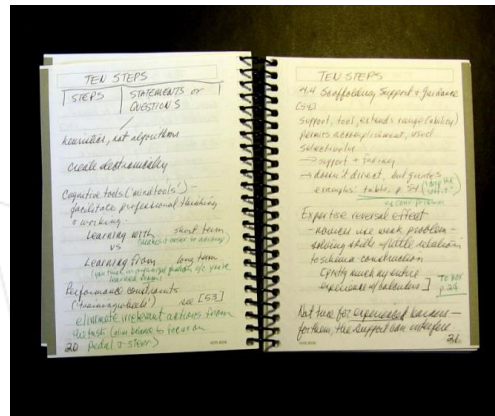 TEN STEPS
STEPS | STATEMENTS or
QUESTIONS
heuristics, not algorithms
create electronically
Cognitive tools ('mindtools') -
facilitate professional thinking
+ working
Learning with short term
vs (makes it easier to
Learning from long term
Performance constraints
('training wheels') see [53]
eliminate irrelevant actions from
the task (also helps to focus on
20 pedal & steer)
TEN STEPS
4.4 Scaffolding Support & Guidance
[54]
support, tool, extends range (ability)
permits accomplishment, used
selectively
→ support + fading
→ doesn't direct, but guides
examples: table, p. 54
of conv. problem
Expertise reversal effect
- novices use weak problem-
solving skills w/little relation
to schema construction
(pretty much my entire
experience w/calendars) TO BOX
p. 24
Not true for experienced learners -
for them, the support can interfere
21